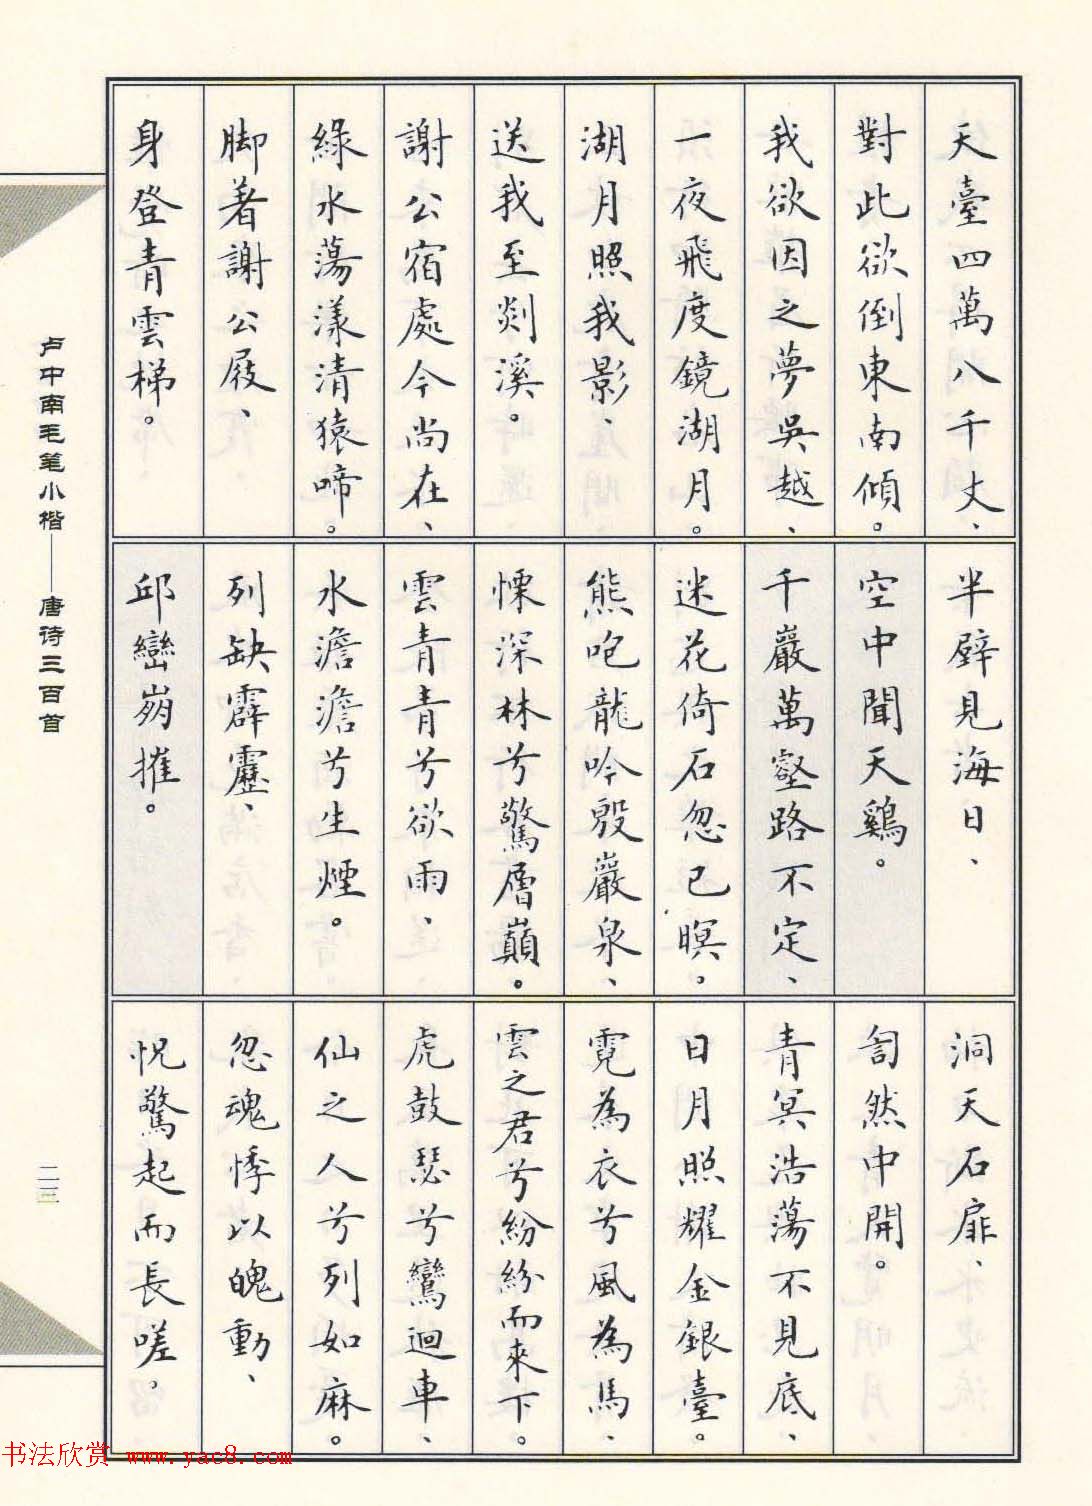 天臺四萬八千丈、
對此欲倒東南傾。
我欲因之夢吳越、
一夜飛度鏡湖月。
湖月照我影、
送我至剡溪。
謝公宿處今尚在、
綠水蕩漾清猿啼。
脚著謝公屐、
身登青雲梯。
半壁見海日、
空中聞天鷄。
千巖萬壑路不定、
迷花倚石忽已暝。
熊咆龍吟殷巖泉、
慄深林兮驚層巔。
雲青青兮欲雨、
水澹澹兮生煙。
列缺霹靂、
邱巒崩摧。
洞天石扉、
訇然中開。
青冥浩蕩不見底、
日月照耀金銀臺。
霓為衣兮風為馬、
雲之君兮紛紛而來下。
虎鼓瑟兮鸞迴車、
仙之人兮列如麻。
忽魂悸以魄動、
怳驚起而長嗟。
卢中南毛笔小楷——唐诗三百首
二三
书法欣赏 www.yac8.com